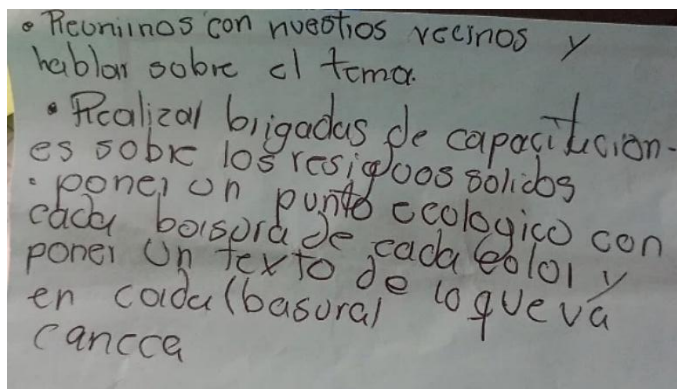 • Reunirnos con nuestros vecinos y
hablar sobre el tema.
• Realizar brigadas de capacitacion-
es sobre los residuos solidos
• poner un punto ecologico con
cada basura de cada color y
poner un texto de lo que va
en cada (basura)